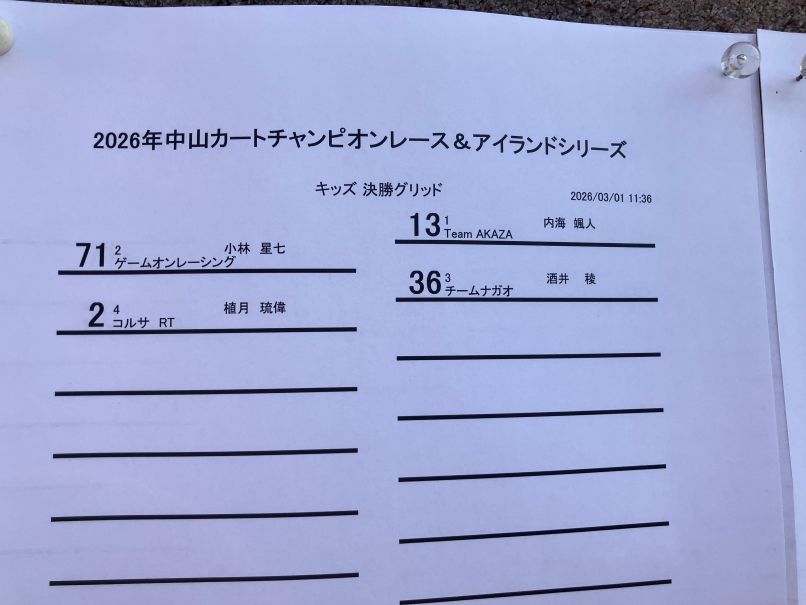 2026年中山カートチャンピオンレース＆アイランドシリーズ
キッズ 決勝グリッド
2026/03/01 11:36
13 1 内海 颯人
Team AKAZA
71 2 小林 星七
ゲームオンレーシング
36 3 酒井 稜
チームナガオ
2 4 植月 琉偉
コルサ RT